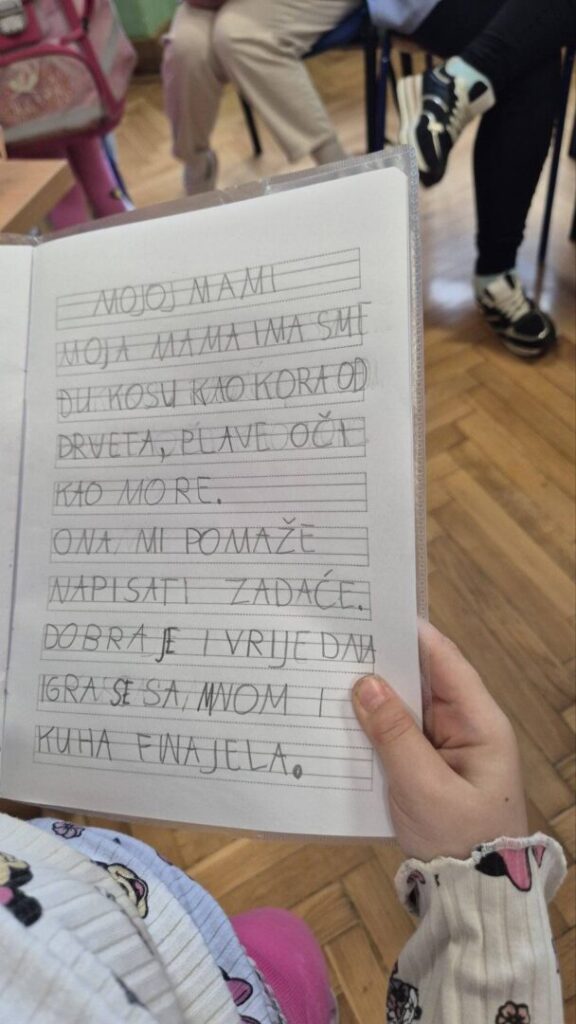 MOJOJ MAMI
MOJA MAMA IMA SME
ĐU KOSU KAO KORA OD
DRVETA, PLAVE OČI
KAO MORE.
ONA MI POMAŽE
NAPISATI ZADAĆE.
DOBRA JE I VRIJEDNA
IGRA SE SA MNOM I
KUHA FINA JELA.